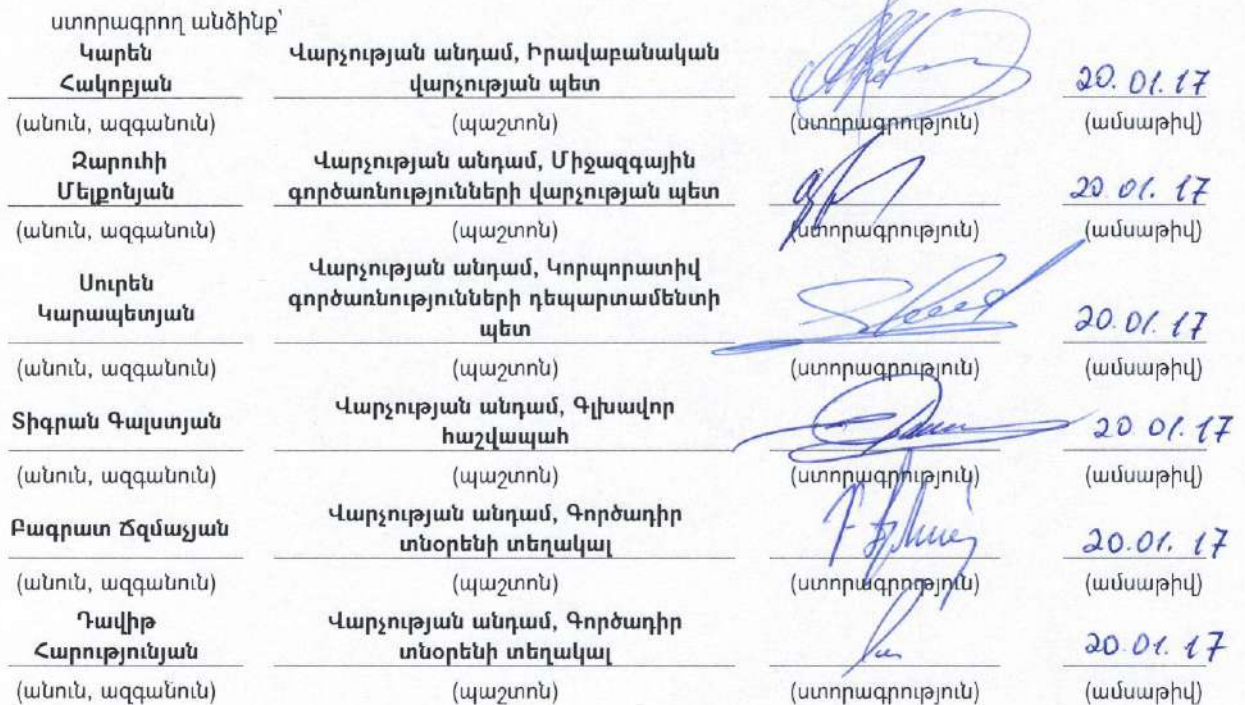 ստորագրող անձինք՝
Կարեն Վարչության անդամ, Իրավաբանական
Հակոբյան վարչության պետ 20.01.17
(անուն, ազգանուն) (պաշտոն) (ստորագրություն) (ամսաթիվ)
Զարուհի Վարչության անդամ, Միջազգային
Մելքոնյան գործառնությունների վարչության պետ 20.01.17
(անուն, ազգանուն) (պաշտոն) (ստորագրություն) (ամսաթիվ)
Սուրեն Վարչության անդամ, Կորպորատիվ
Կարապետյան գործառնությունների դեպարտամենտի
պետ 20.01.17
(անուն, ազգանուն) (պաշտոն) (ստորագրություն) (ամսաթիվ)
Տիգրան Գալստյան Վարչության անդամ, Գլխավոր
հաշվապահ 20.01.17
(անուն, ազգանուն) (պաշտոն) (ստորագրություն) (ամսաթիվ)
Բագրատ Ճզմաչյան Վարչության անդամ, Գործադիր
տնօրենի տեղակալ 20.01.17
(անուն, ազգանուն) (պաշտոն) (ստորագրություն) (ամսաթիվ)
Դավիթ Վարչության անդամ, Գործադիր
Հարությունյան տնօրենի տեղակալ 20.01.17
(անուն, ազգանուն) (պաշտոն) (ստորագրություն) (ամսաթիվ)